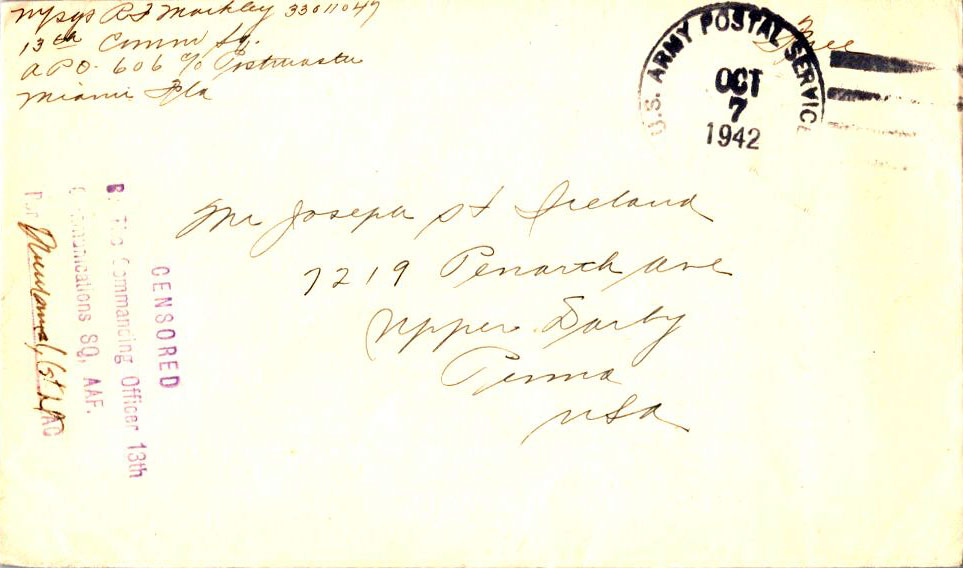 R F Markley 33011047
13th Comm Sq.
APO 606 c/o Postmaster
Miami Fla
Free
U.S. ARMY POSTAL SERVICE
OCT
7
1942
Mr Joseph St Ireland
7219 Penarth Ave
Upper Darby
Penna
USA
CENSORED
By The Commanding Officer 13th
Communications SQ, AAF.
Per 1st Lt AC